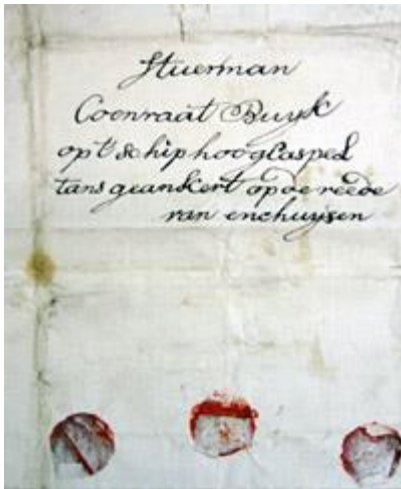 Stuerman
Coenraat Buysk
op't schip hooglasped
tans geankert op de reede
van enchuysen